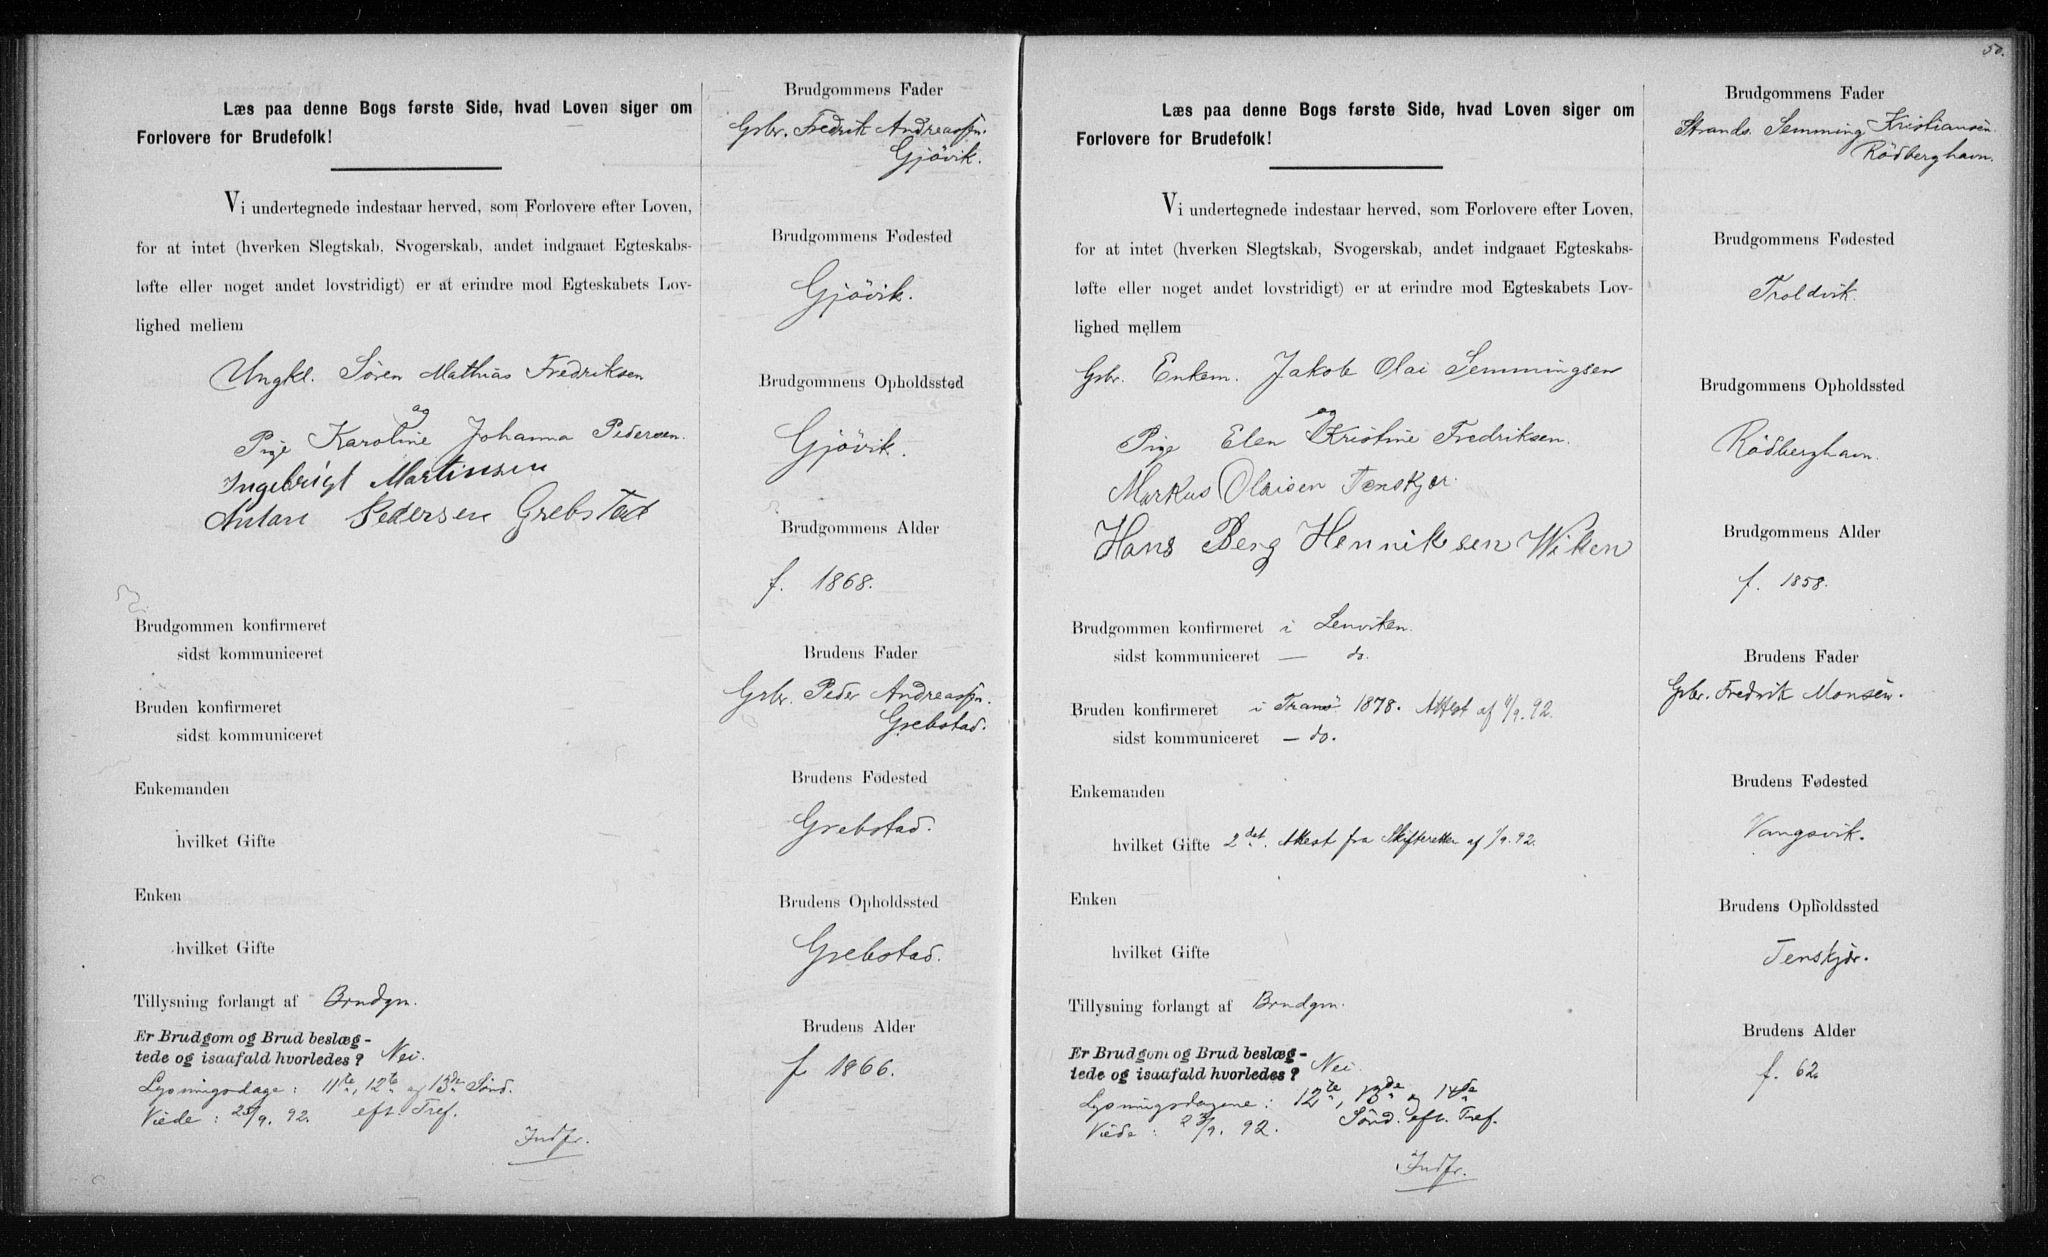 Læs paa denne Bogs første Side, hvad Loven siger om
Forlovere for Brudefolk!
Vi undertegnede indestaar herved, som Forlovere efter Loven,
for at intet (hverken Slegtskab, Svogerskab, andet indgaaet Egteskabs-
løfte eller noget andet lovstridigt) er at erindre mod Egteskabets Lov-
lighed mellem
Ungkl. Sören Mathias Fredriksen
og
Pige Karoline Johanna Pedersen.
Ingebrigt Martinsen
Antan Pedersen Grebstad
Brudgommen konfirmeret
sidst kommuniceret
Bruden konfirmeret
sidst kommuniceret
Enkemanden
hvilket Gifte
Enken
hvilket Gifte
Tillysning forlangt af Brudgm.
Er Brudgom og Brud beslæg-
tede og isaafald hvorledes? Nei.
Lysningsdage: 11te, 12te og 13de Sönd.
Viede: 25/9. 92. eft. Tref.
Indfr.
Brudgommens Fader
Gbr. Fredrik Andreassen.
Gjövik.
Brudgommens Fødested
Gjövik.
Brudgommens Opholdssted
Gjövik.
Brudgommens Alder
f. 1868.
Brudens Fader
Gbr. Peder Andreassen.
Grebstad.
Brudens Fødested
Grebstad.
Brudens Opholdssted
Grebstad.
Brudens Alder
f. 1866.
50.
Læs paa denne Bogs første Side, hvad Loven siger om
Forlovere for Brudefolk!
Vi undertegnede indestaar herved, som Forlovere efter Loven,
for at intet (hverken Slegtskab, Svogerskab, andet indgaaet Egteskabs-
løfte eller noget andet lovstridigt) er at erindre mod Egteskabets Lov-
lighed mellem
Gbr. Enkem. Jakob Olai Semmingsen
og
Pige Elen Kristine Fredriksen.
Markus Olaisen Tenskjær.
Hans Berg Henniksen Wiken
Brudgommen konfirmeret i Lenviken.
sidst kommuniceret — do.
Bruden konfirmeret i Tranö 1878. Attest af 11/9. 92.
sidst kommuniceret — do.
Enkemanden
hvilket Gifte 2det. Attest fra Skifteretten af 1/9. 92.
Enken
hvilket Gifte
Tillysning forlangt af Brudgm.
Er Brudgom og Brud beslæg-
tede og isaafald hvorledes? Nei.
Lysningsdagene: 12te, 13de og 14de
Sönd. eft. Tref.
Viede: 23/9. 92.
Indfr.
Brudgommens Fader
Strands. Semming Kristiansen.
Rödberghavn.
Brudgommens Fødested
Troldvik.
Brudgommens Opholdssted
Rödberghavn.
Brudgommens Alder
f. 1858.
Brudens Fader
Gbr. Fredrik Monsen.
Brudens Fødested
Vangsvik.
Brudens Opholdssted
Tenskjær.
Brudens Alder
f. 62.